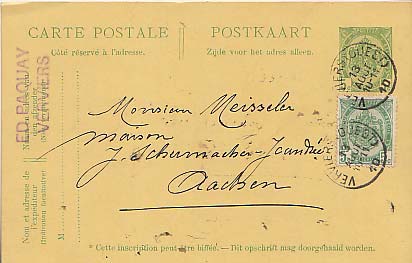 CARTE POSTALE
POSTKAART
Côté réservé à l'adresse.
Zijde voor het adres alleen.
ED. PAQUAY
VERVIERS
Nom et adresse de
l'expéditeur
M
Monsieur Meisseler
maison
J. Schumacher-Jeandrée
Aachen
VERVIERS (OUEST)
10
VERVIERS (OUEST)
10
* Cette inscription peut être biffée. — Dit opschrift mag doorgehaald worden.